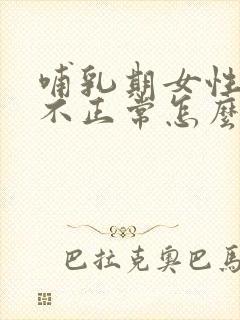 哺乳期女性
不正常怎麼
巴拉克奧巴馬